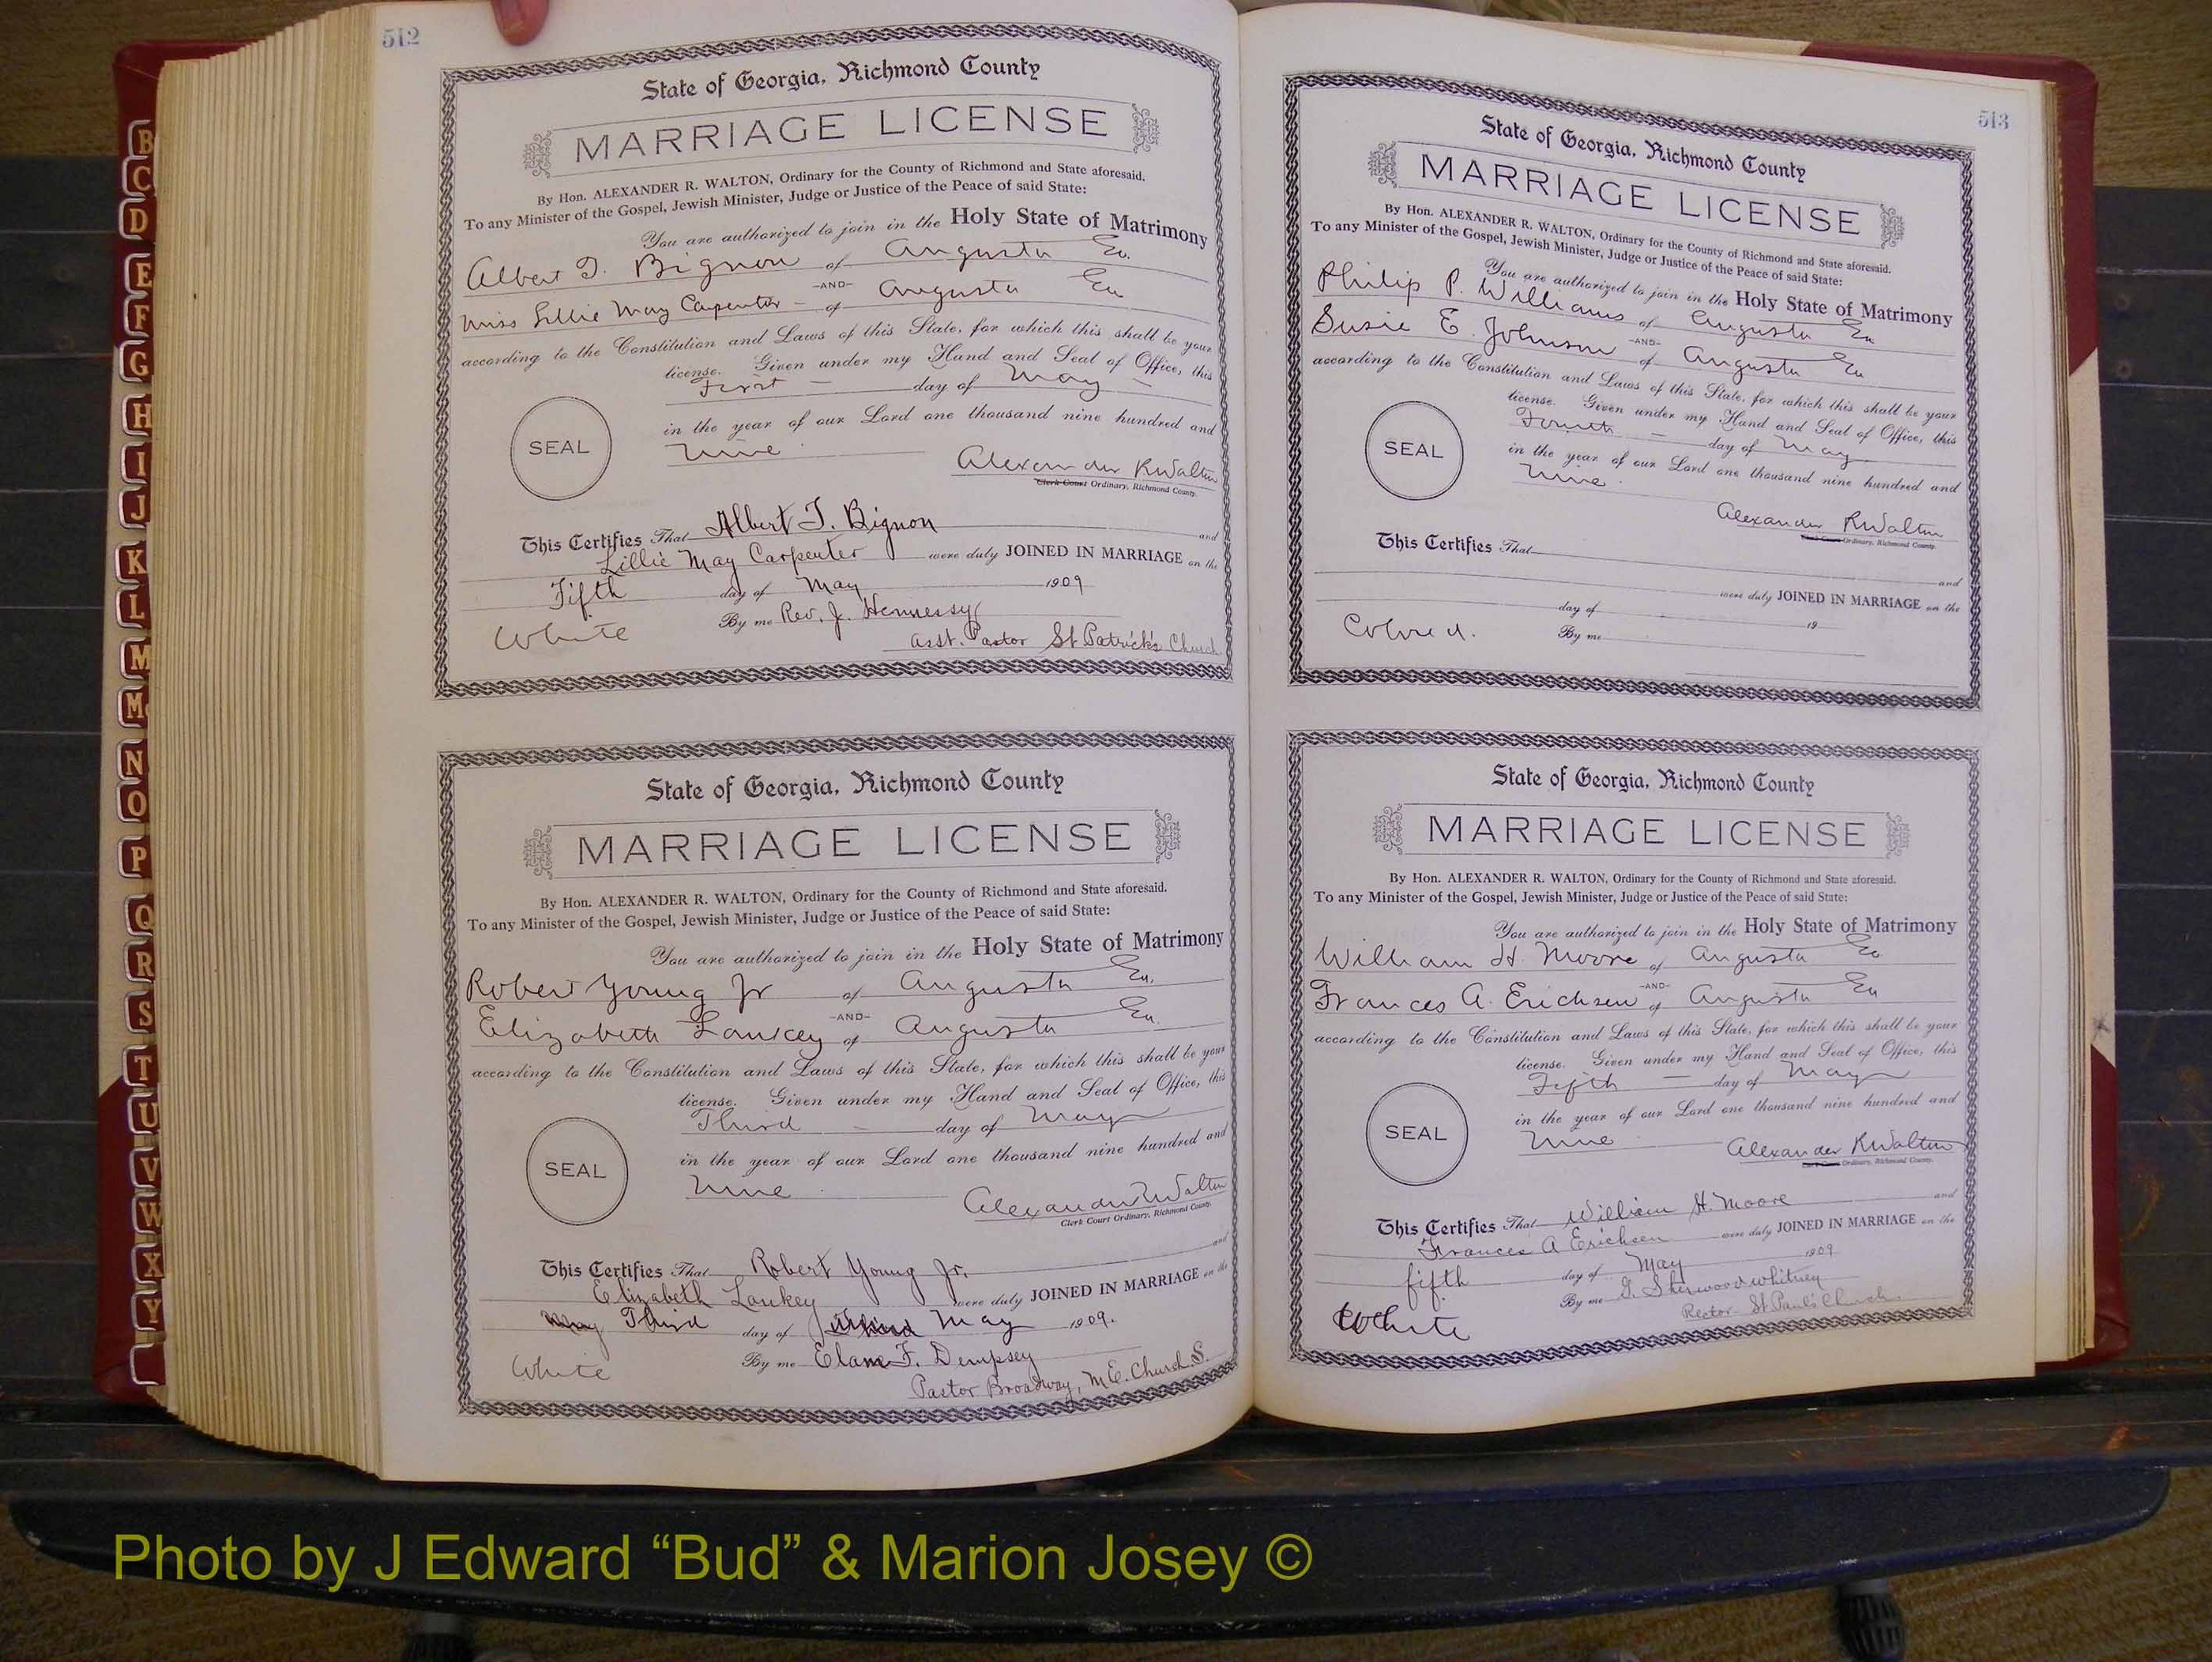 512
State of Georgia, Richmond County
MARRIAGE LICENSE
By Hon. ALEXANDER R. WALTON, Ordinary for the County of Richmond and State aforesaid.
To any Minister of the Gospel, Jewish Minister, Judge or Justice of the Peace of said State:
You are authorized to join in the Holy State of Matrimony
Albert T. Bignon of Augusta Ga.
-AND-
Miss Lillie May Carpenter - of Augusta Ga
according to the Constitution and Laws of this State, for which this shall be your
license. Given under my Hand and Seal of Office, this
First - day of May -
in the year of our Lord one thousand nine hundred and
SEAL
Nine
Alexander R Walton
Clerk Court Ordinary, Richmond County.
This Certifies That Albert T. Bignon and
Lillie May Carpenter were duly JOINED IN MARRIAGE on the
Fifth day of May 1909
White By me Rev. J. Hennessy
asst. Pastor St Patrick's Church
State of Georgia, Richmond County
MARRIAGE LICENSE
By Hon. ALEXANDER R. WALTON, Ordinary for the County of Richmond and State aforesaid.
To any Minister of the Gospel, Jewish Minister, Judge or Justice of the Peace of said State:
You are authorized to join in the Holy State of Matrimony
Robert Young Jr of Augusta Ga.
-AND-
Elizabeth Lankey of Augusta Ga.
according to the Constitution and Laws of this State, for which this shall be your
license. Given under my Hand and Seal of Office, this
Third - day of May
in the year of our Lord one thousand nine hundred and
SEAL
Nine
Alexander R Walton
Clerk Court Ordinary, Richmond County.
This Certifies That Robert Young Jr. and
Elizabeth Lankey were duly JOINED IN MARRIAGE on the
May Third day of May 1909.
White By me Elam F. Dempsey
Pastor Broadway, M.E. Church S.
513
State of Georgia, Richmond County
MARRIAGE LICENSE
By Hon. ALEXANDER R. WALTON, Ordinary for the County of Richmond and State aforesaid.
To any Minister of the Gospel, Jewish Minister, Judge or Justice of the Peace of said State:
You are authorized to join in the Holy State of Matrimony
Philip P. Williams of Augusta Ga
-AND-
Susie E. Johnson of Augusta Ga
according to the Constitution and Laws of this State, for which this shall be your
license. Given under my Hand and Seal of Office, this
Fourth - day of May
in the year of our Lord one thousand nine hundred and
SEAL
Nine.
Alexander R Walton
Clerk Court Ordinary, Richmond County.
This Certifies That and
were duly JOINED IN MARRIAGE on the
day of 19
Colored. By me
State of Georgia, Richmond County
MARRIAGE LICENSE
By Hon. ALEXANDER R. WALTON, Ordinary for the County of Richmond and State aforesaid.
To any Minister of the Gospel, Jewish Minister, Judge or Justice of the Peace of said State:
You are authorized to join in the Holy State of Matrimony
William H. Moore of Augusta Ga
-AND-
Frances A. Erichsen of Augusta Ga
according to the Constitution and Laws of this State, for which this shall be your
license. Given under my Hand and Seal of Office, this
Fifth - day of May
in the year of our Lord one thousand nine hundred and
SEAL
Nine
Alexander R Walton
Clerk Court Ordinary, Richmond County.
This Certifies That William H. Moore and
Frances A Erichsen were duly JOINED IN MARRIAGE on the
fifth day of May 1909
White By me G. Sherwood Whitney
Rector St Paul's Church
B
C
D
E
F
G
H
I
J
K
L
M
Mc
N
O
P
Q
R
S
T
U
V
W
X
Y
Photo by J Edward “Bud” & Marion Josey ©